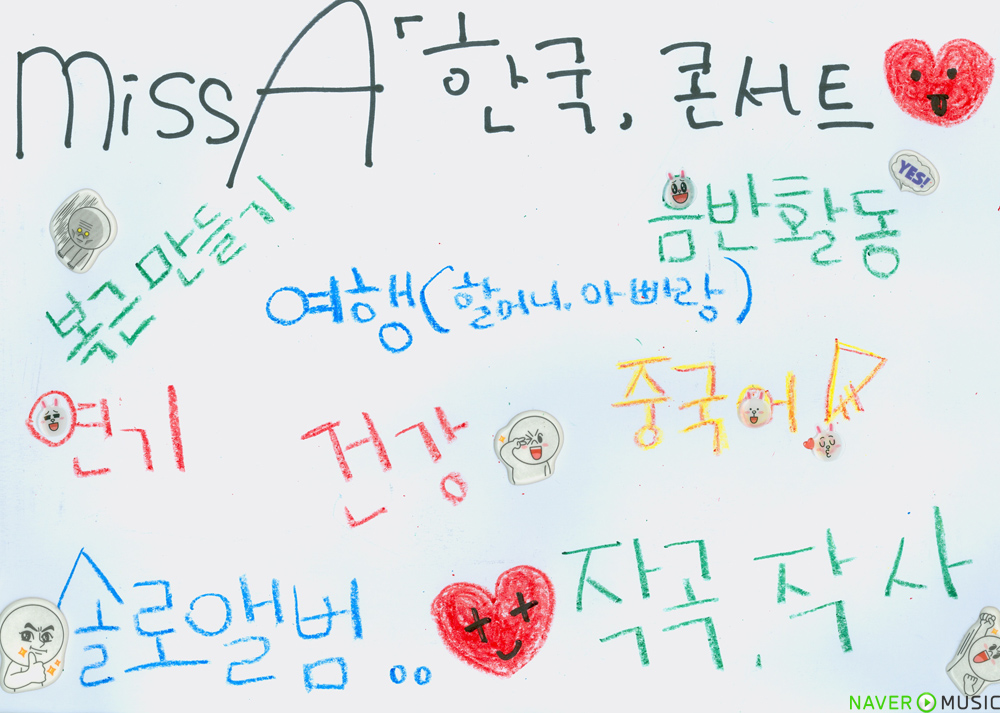 miss A 「한국, 콘서트
YES!
복근 만들기
음반활동
여행(할머니, 아빠랑)
연기
건강
중국어!
솔로앨범..
작곡, 작사
NAVER MUSIC